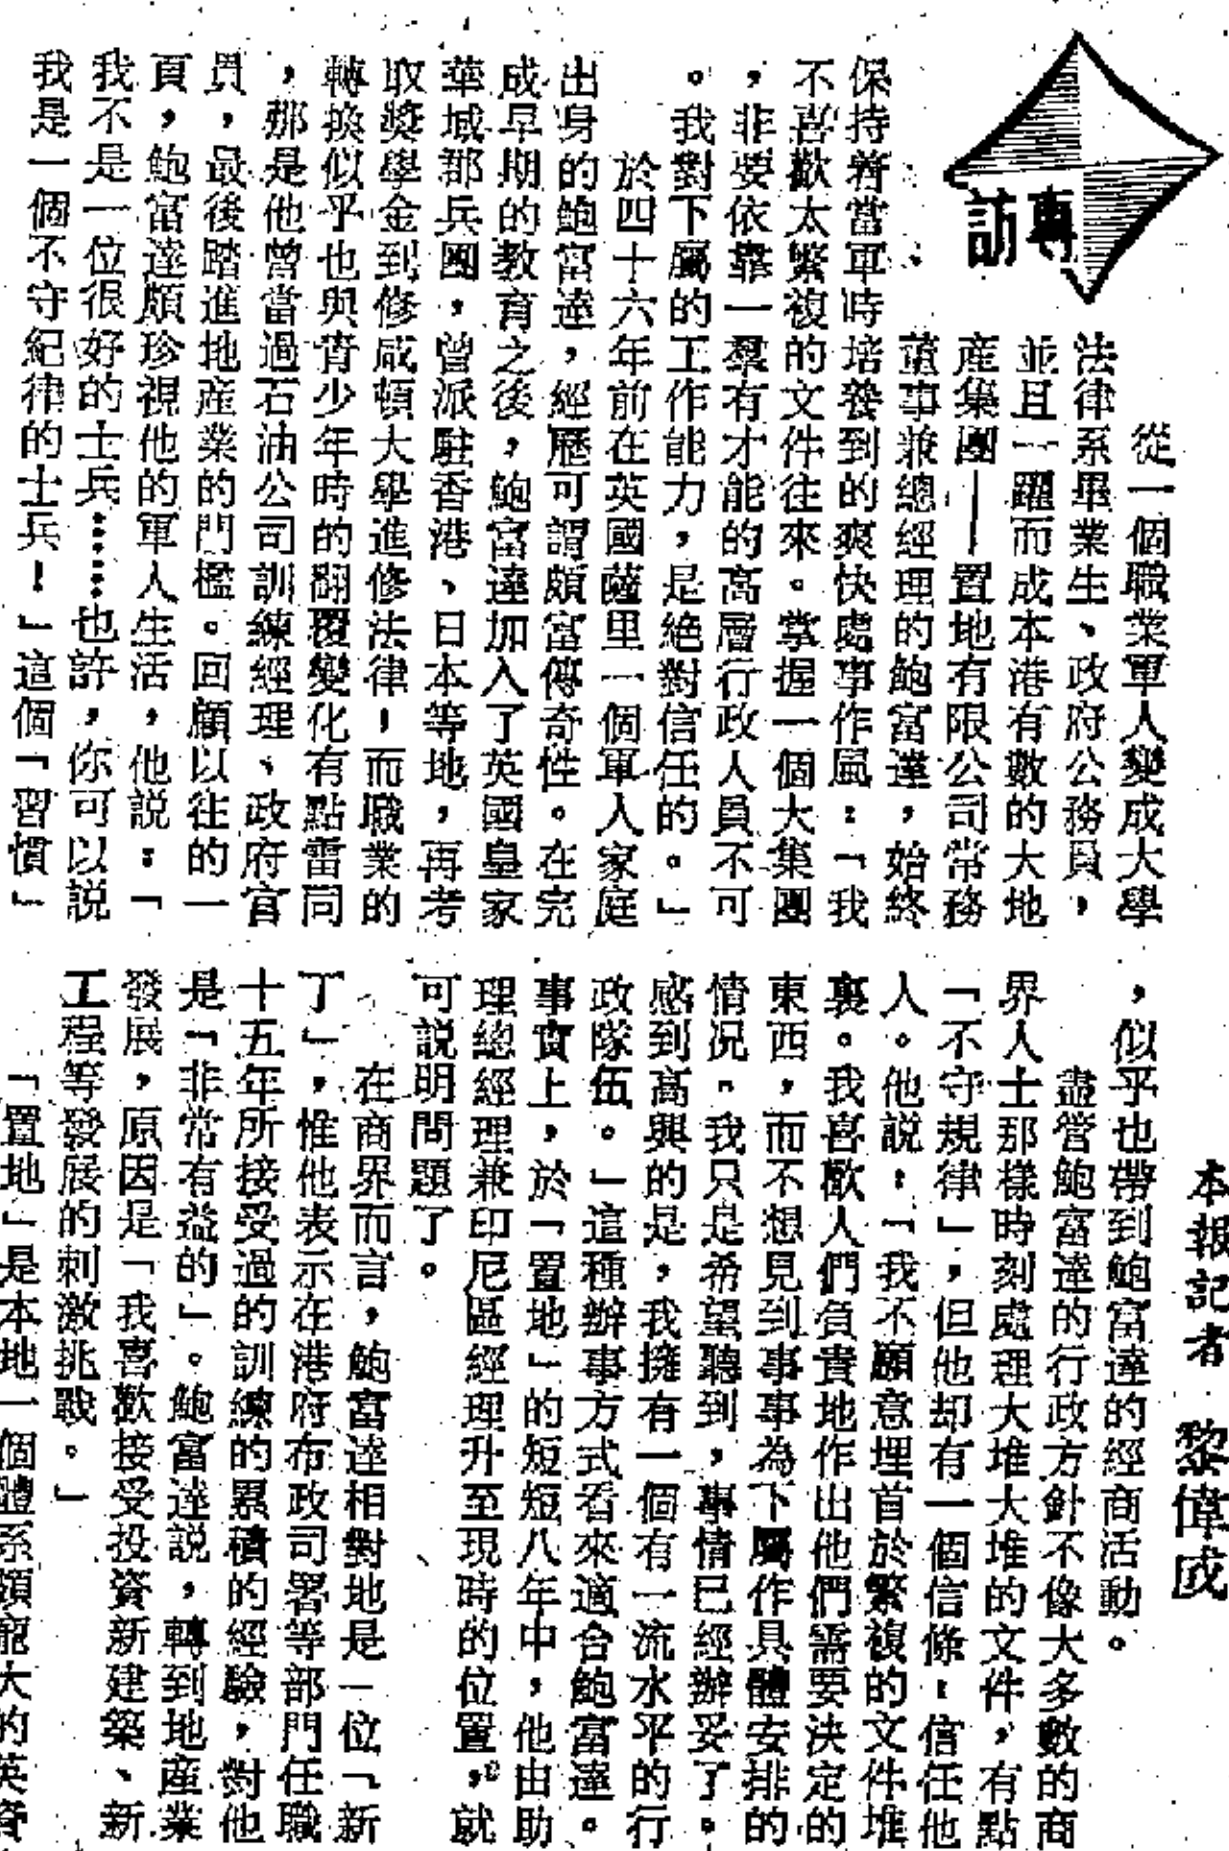 專訪
從一個職業軍人變成大學
法律系畢業生、政府公務員，
並且一躍而成本港有數的大地
產集團——置地有限公司常務
董事兼總經理的鮑富達，始終
保持着當軍時培養到的爽快處事作風：「我
不喜歡太繁複的文件往來。掌握一個大集團
，非要依靠一羣有才能的高層行政人員不可
。我對下屬的工作能力，是絕對信任的。」
於四十六年前在英國薩里一個軍人家庭
出身的鮑富達，經歷可謂頗富傳奇性。在完
成早期的教育之後，鮑富達加入了英國皇家
華域郡兵團，曾派駐香港、日本等地，再考
取獎學金到修咸頓大學進修法律，而職業的
轉換似乎也與青少年時的翻覆變化有點雷同
，那是他曾當過石油公司訓練經理、政府官
員，最後踏進地產業的門檻。回顧以往的一
頁，鮑富達頗珍視他的軍人生活，他説：「
我不是一位很好的士兵……也許，你可以説
我是一個不守紀律的士兵！」這個「習慣」
本報記者 黎偉成
，似乎也帶到鮑富達的經商活動。
盡管鮑富達的行政方針不像大多數的商
界人士那樣時刻處理大堆大堆的文件，有點
「不守規律」，但他却有一個信條：信任他
人。他説：「我不願意埋首於繁複的文件堆
裏。我喜歡人們負責地作出他們需要決定的
東西，而不想見到事事為下屬作具體安排的
情況。我只是希望聽到，事情已經辦妥了。
感到高興的是，我擁有一個有一流水平的行
政隊伍。」這種辦事方式看來適合鮑富達。
事實上，於「置地」的短短八年中，他由助
理總經理兼印尼區經理升至現時的位置，就
可説明問題了。
在商界而言，鮑富達相對地是一位「新
丁」，惟他表示在港府布政司署等部門任職
十五年所接受過的訓練的累積的經驗，對他
是「非常有益的」。鮑富達説，轉到地產業
發展，原因是「我喜歡接受投資新建築、新
工程等發展的刺激挑戰。」
「置地」是本地一個體系頗龐大的英資